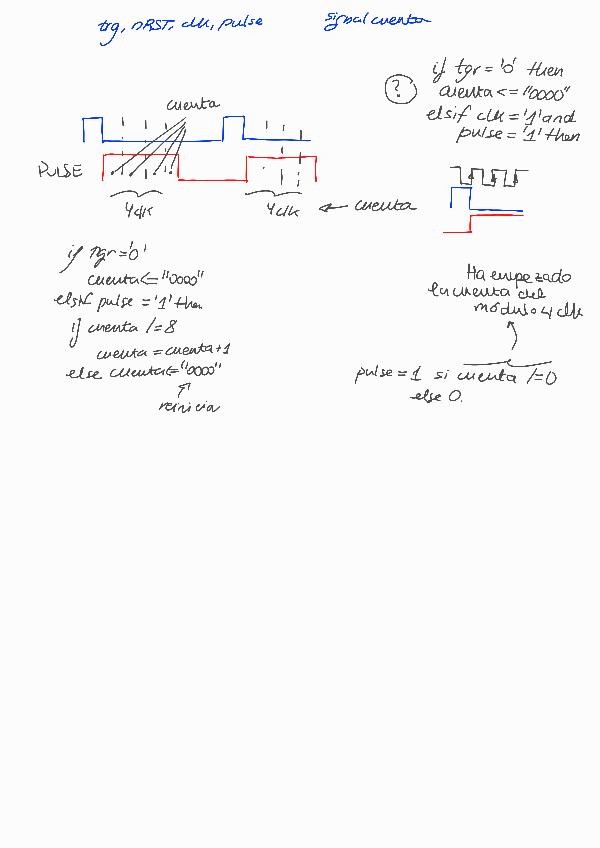 trg, nRST, clk, pulse
signal cuenta
?
if tgr = '0' then
cuenta <= "0000"
elsif clk = '1' and
pulse = '1' then
cuenta
PULSE
4clk
4clk ← cuenta
if tgr = '0'
cuenta <= "0000"
elsif pulse = '1' then
if cuenta /= 8
cuenta = cuenta + 1
else cuenta <= "0000"
reinicia
Ha empezado
la cuenta del
módulo 4 clk
pulse = 1 si cuenta /= 0
else 0.